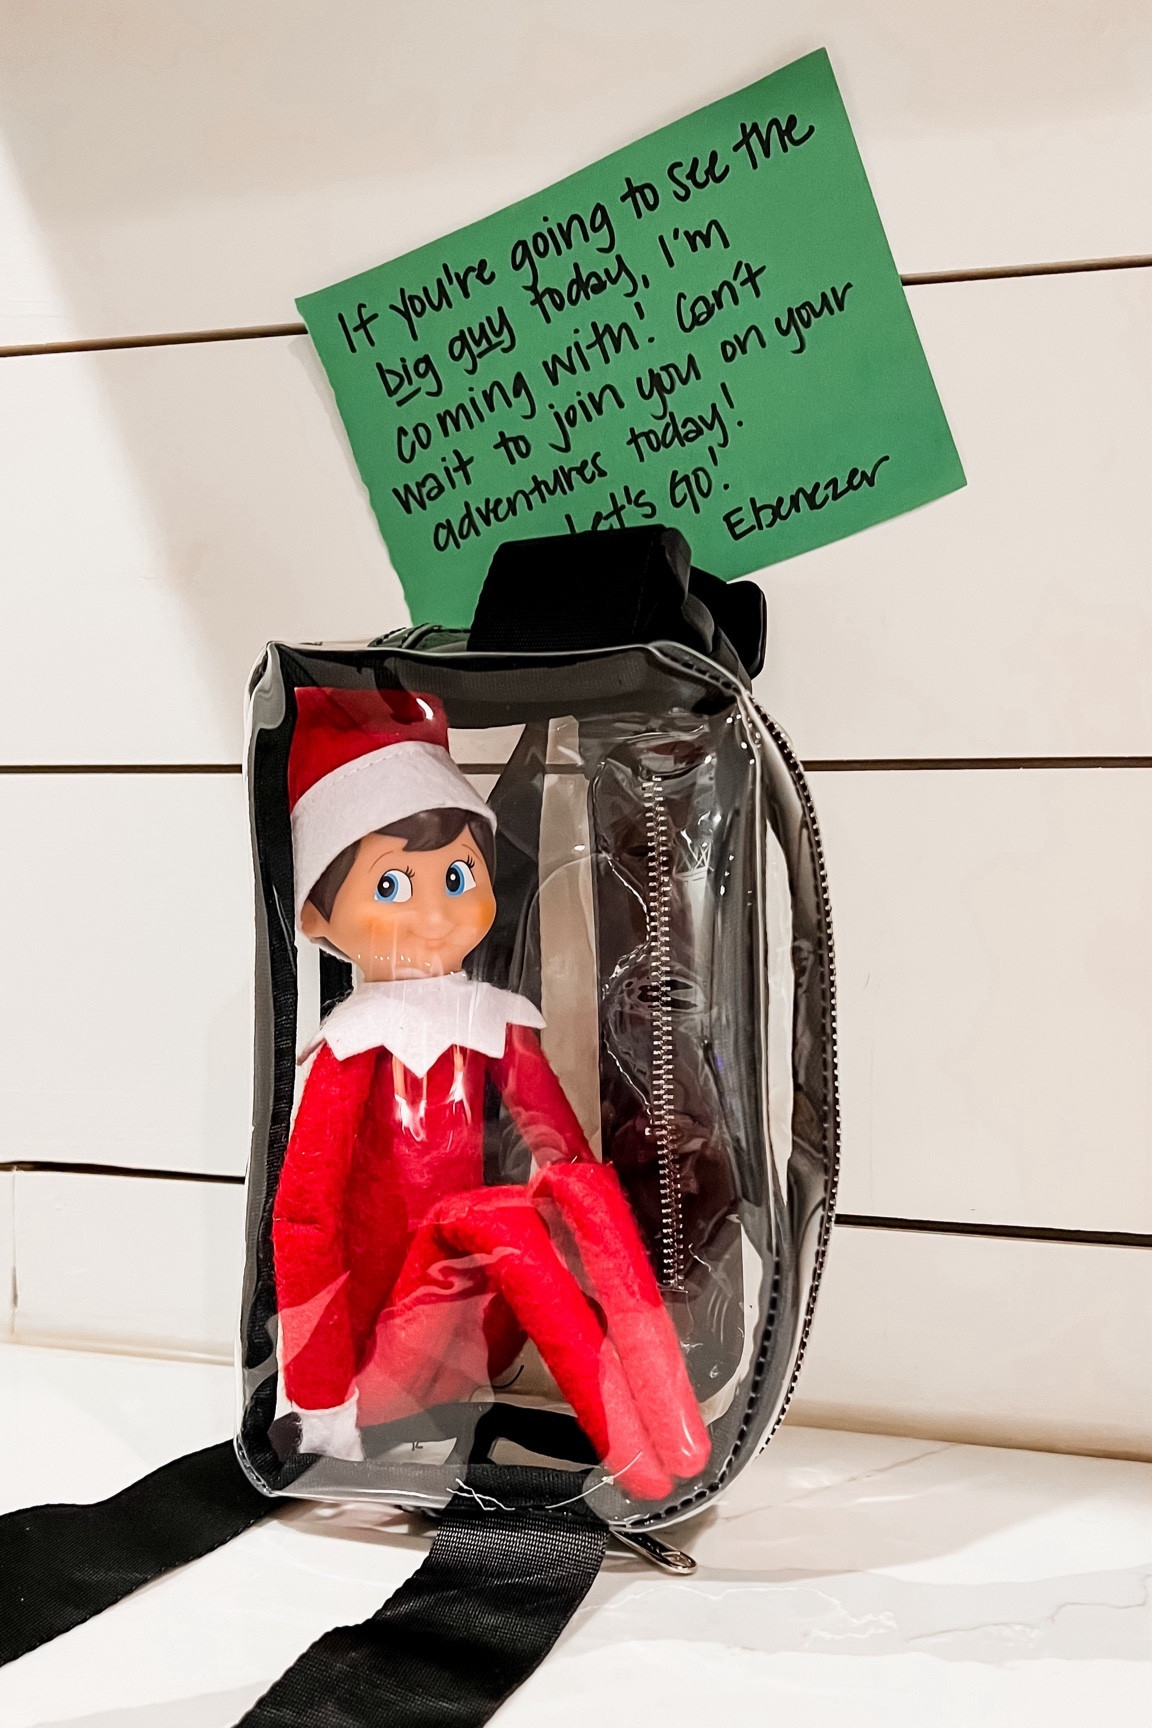 If you're going to see the
big guy today, I'm
coming with! Can't
wait to join you on your
adventures today!
Let's GO!
Ebenezer